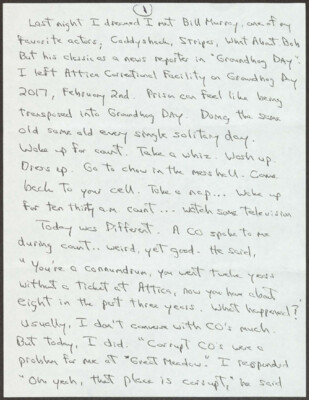 1
Last night I dreamed I met Bill Murray, one of my
favorite actors, Caddyshack, Stripes, What About Bob
But his classic as a news reporter in "Groundhog Day".
I left Attica Correctional Facility on Groundhog Day
2017, February 2nd. Prison can feel like being
transposed into Groundhog Day. Doing the same
old same old every single solitary day.
Wake up for count. Take a whiz. Wash up.
Dress up. Go to chow in the messhall. Come
back to your cell. Take a nap... Wake up
for ten thirty a.m. count... Watch some television
Today was Different. A CO spoke to me
during count.. weird, yet good. He said,
"You're a connundrum, you went twelve years
without a ticket at Attica, now you have about
eight in the past three years. What happened?"
Usually, I don't converse with CO's much.
But today, I did. "Corrupt CO's were a
problem for me at "Great Meadow." I responded
"Oh yeah, that place is corrupt," he said